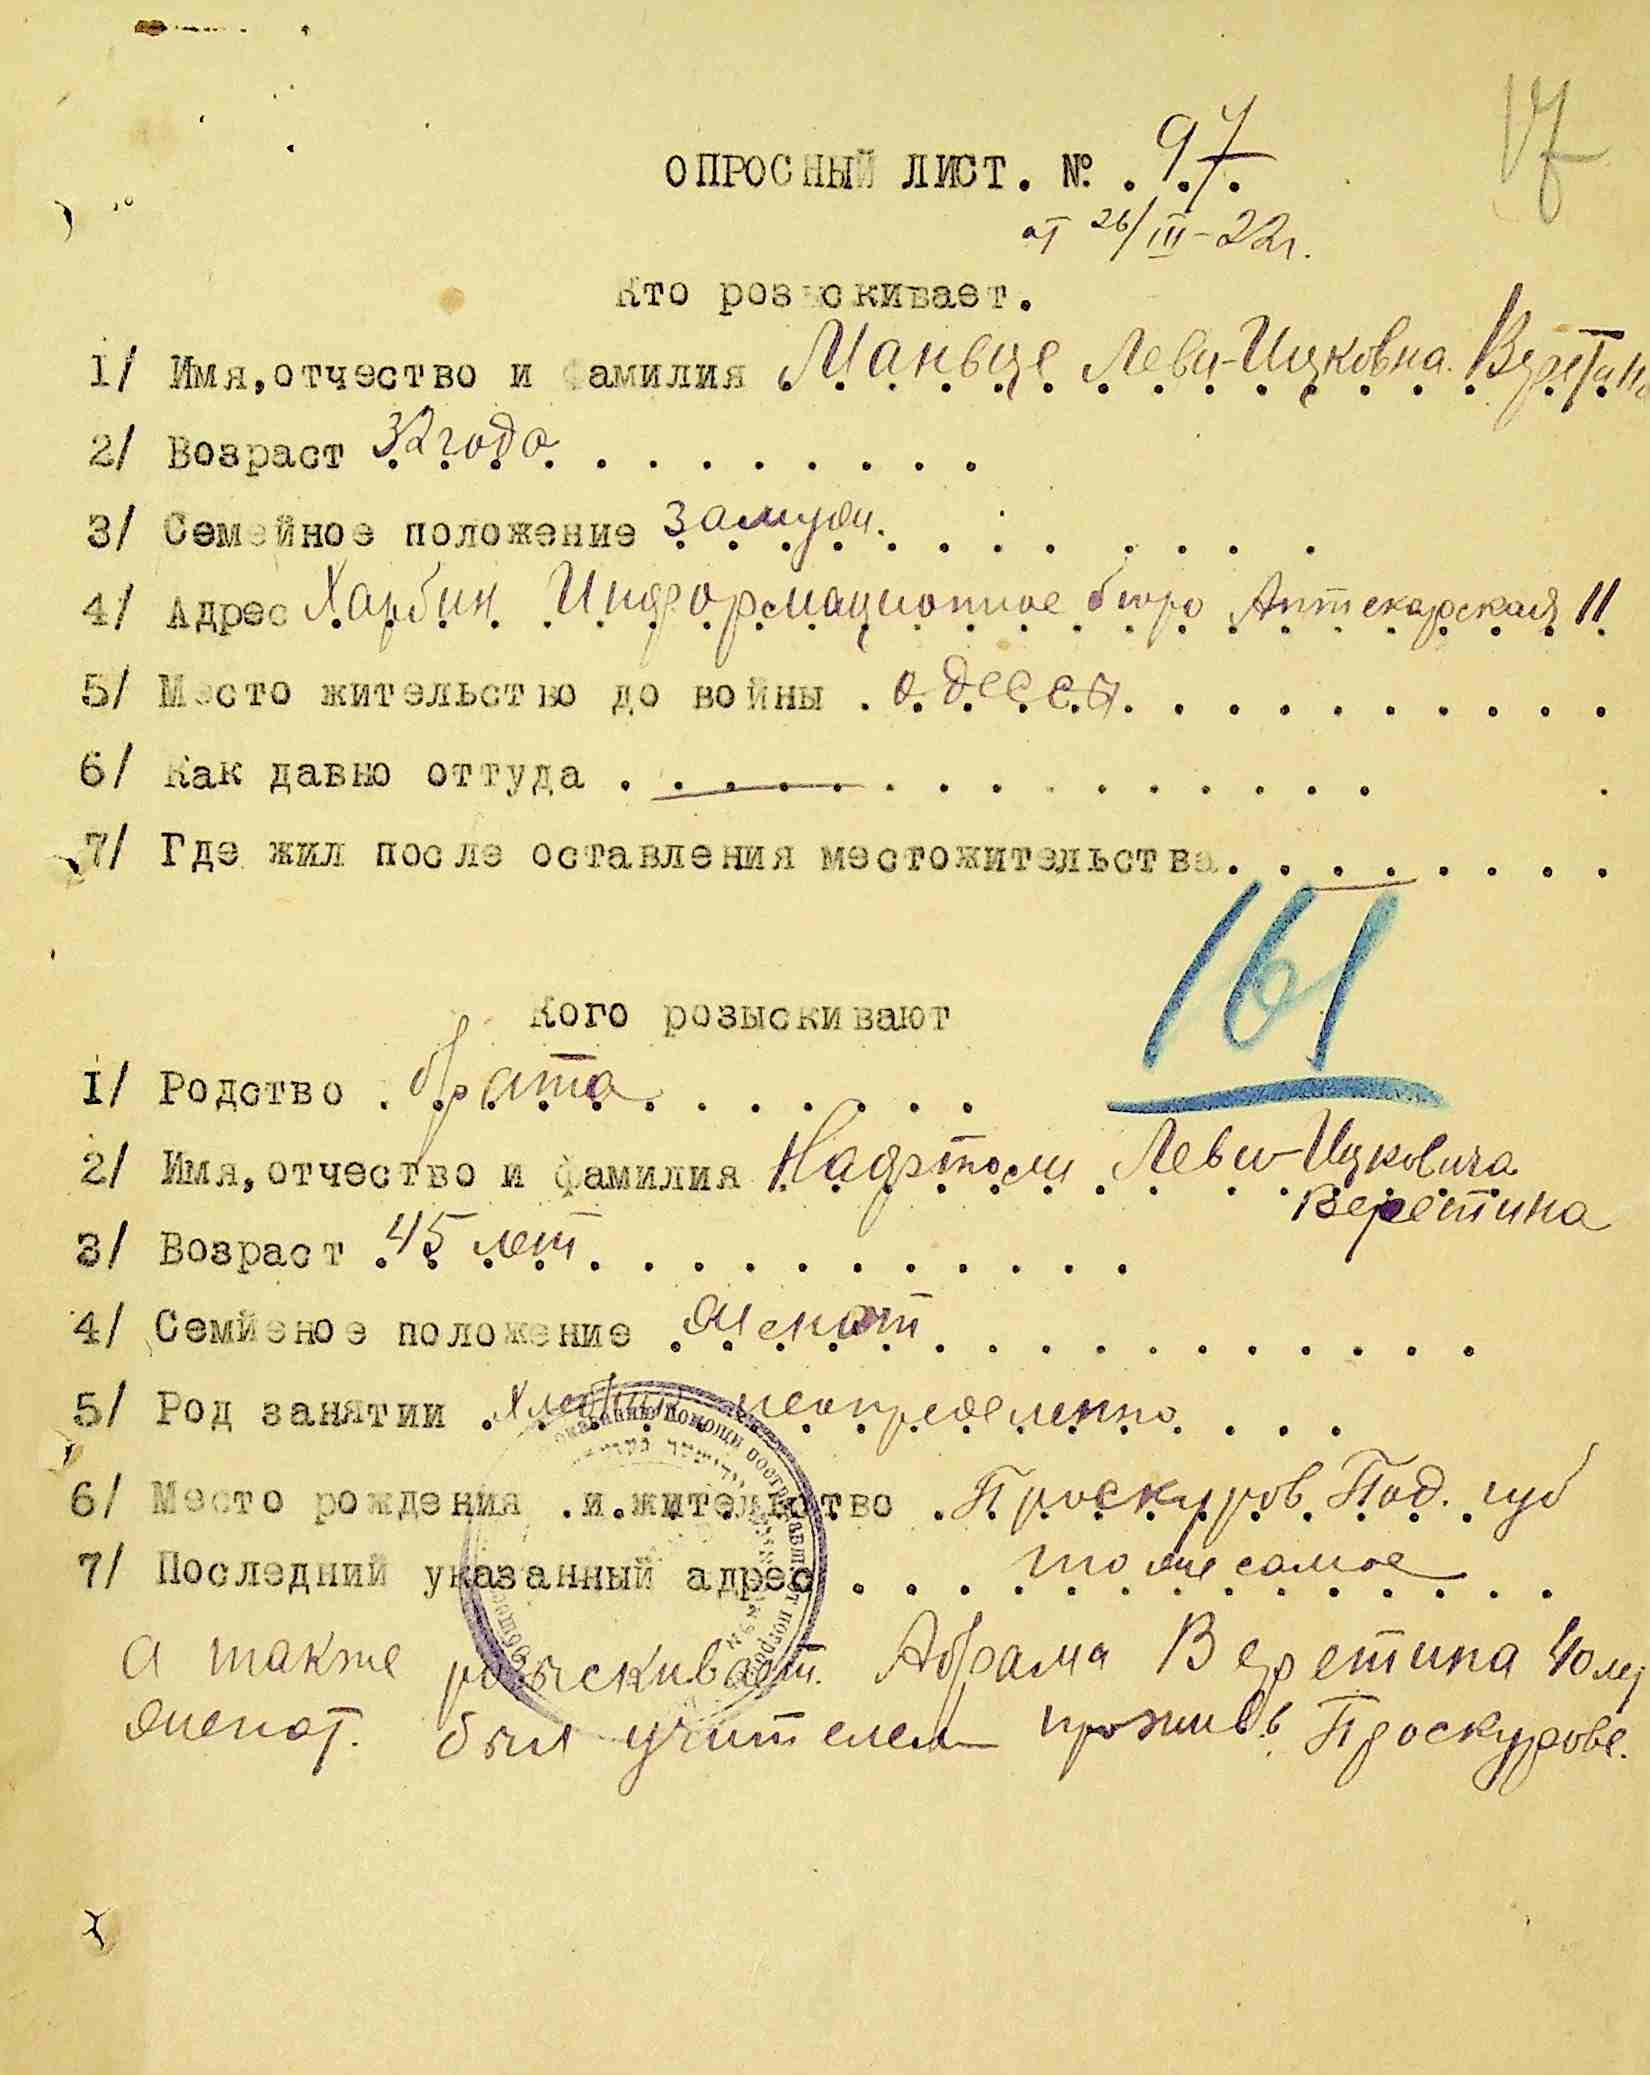 17
ОПРОСНЫЙ ЛИСТ. №. 97.
от 26/III-22г.
Кто розыскивает.
1/ Имя, отчество и фамилия Маньце Леви-Ицковна Веретин
2/ Возраст 32 года
3/ Семейное положение замуж.
4/ Адрес Харбин Информационное бюро Аптекарская 11
5/ Место жительство до войны . Одесса
6/ Как давно оттуда . —
7/ Где жил после оставления местожительства. —
161
Кого розыскивают
1/ Родство . брата
2/ Имя, отчество и фамилия Нафтоли Леви-Ицковича
Веретина
3/ Возраст 45 лет
4/ Семйеное положение женат
5/ Род занятии неопределенно
6/ Место рождения .и.жительство . Проскуров Под. губ
7/ Последний указанный адрес тоже самое
а также розыскивает. Абрама Веретина 40 лет
женат. был учителем прожив. в Проскурове.
оказанию помощи